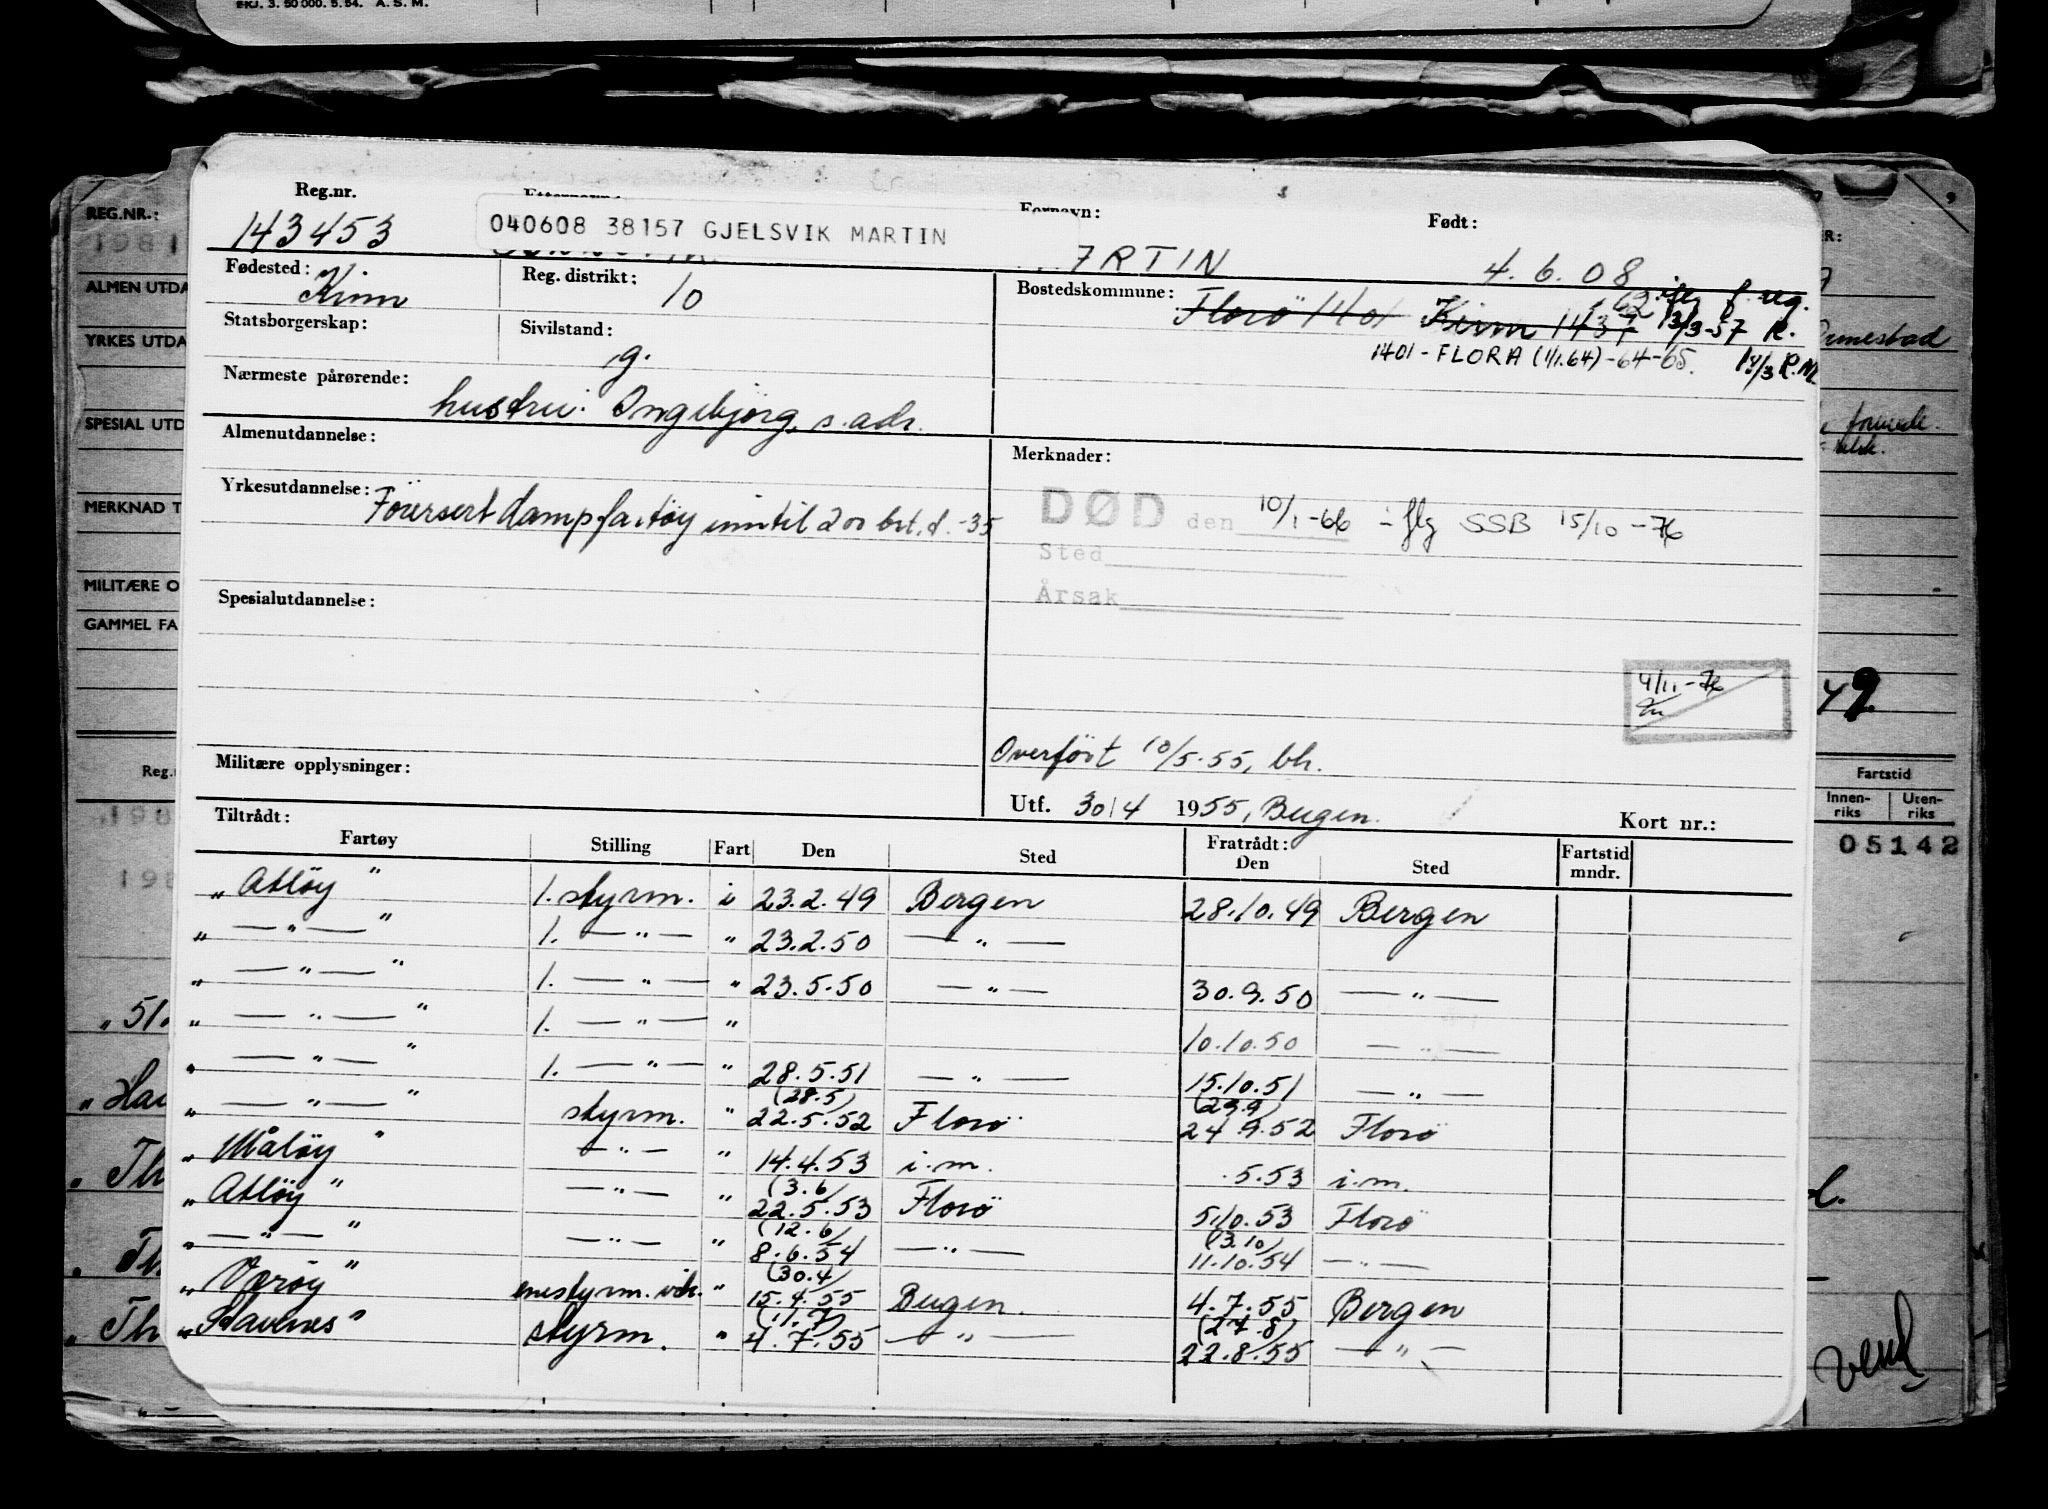 EKJ. 3. 50 000. 5. 54. A. S. M.
Reg.nr.
Fornavn:
Født:
143453
040608 38157 GJELSVIK MARTIN
RTIN
4. 6. 08
Fødested: Kinn
Reg. distrikt: 10
Bostedskommune: Florö 1401 Kinn 1437 13/3-57 R.
62 iflg f. reg.
Statsborgerskap:
Sivilstand: g.
1401 - FLORA (1/1.64) -64-65.
Nærmeste pårørende: hustru: Ingebjørg, s. adr.
Almenutdannelse:
Merknader:
Yrkesutdannelse: Förersert. dampfartöy inntil 200 brt. d. -35
DØD den 10/1-66 iflg SSB 15/10-76
Sted
Årsak
Spesialutdannelse:
4/11-76
Overfört 10/5.55, bh.
Militære opplysninger:
Utf. 30/4 1955, Bergen.
Kort nr.:
Tiltrådt:
Fratrådt:
Fartøy Stilling Fart Den Sted Den Sted Fartstid mndr.
"Atløy" 1. styrm. i 23.2.49 Bergen 28.10.49 Bergen
" — " — " 1. — " — " 23.2.50 — " —
" — " — " 1. — " — " 23.5.50 — " — 30.9.50 — " —
" — " — " 1. — " — " 10.10.50 — " —
" — " — " 1. — " — " 28.5.51 — " — 15.10.51 — " —
(28.5) (29.9)
" — " — " styrm. " 22.5.52 Florö 24.9.52 Florö
"Måløy" — " — " 14.4.53 i.m. .5.53 i.m.
(3.6)
"Atløy" — " — " 22.5.53 Florö 5.10.53 Florö
(12.6) (3.10)
" — " — " — " — " 8.6.54 — " — 11.10.54 — " —
(30.4)
"Værøy" enestyrm. vik. " 15.4.55 Bergen. 4.7.55 Bergen
(11.7) (27.8)
"Stavenes" styrm. " 4.7.55 — " — 22.8.55 — " —
REG.NR.:
1981
ALMEN UTDA
YRKES UTDA
SPESIAL UTD
MERKNAD T
MILITÆRE O
GAMMEL FA
Reg.
198
198
"51
"Hau
"Th
"Th
"Th
R:
49
Fartstid
Innen-riks Uten-riks
05142
vend